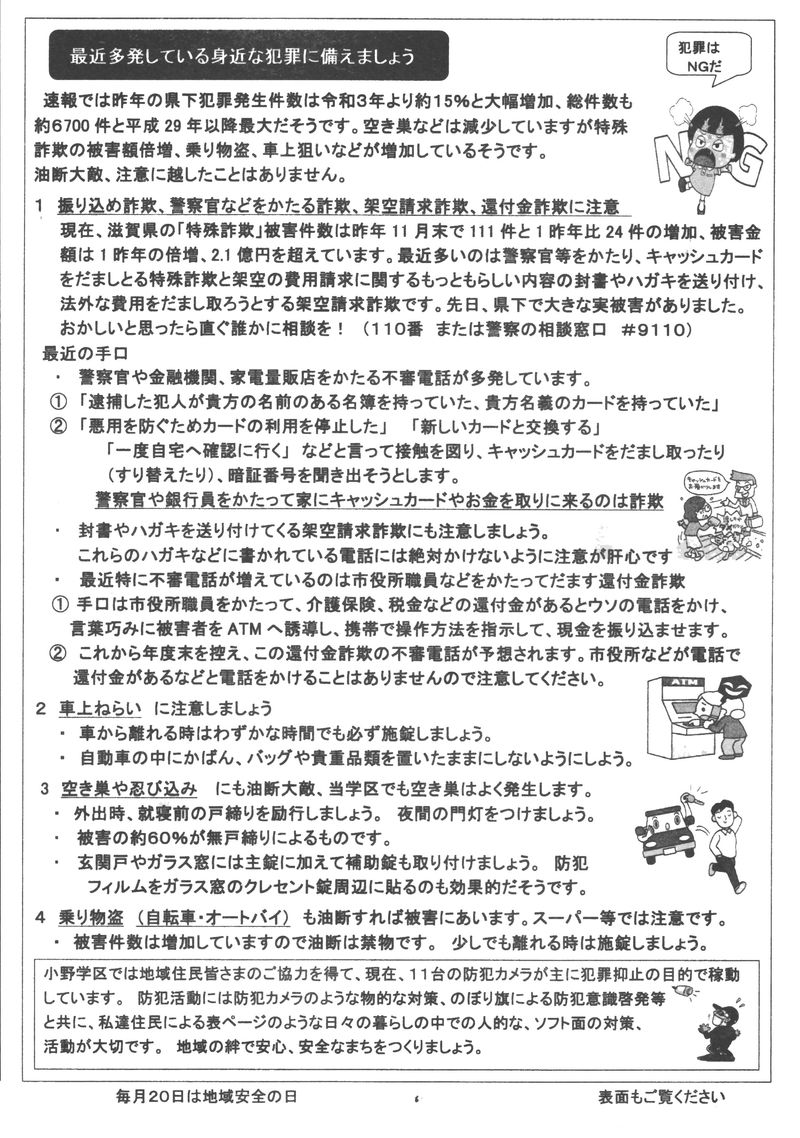 最近多発している身近な犯罪に備えましょう
犯罪は
NGだ
速報では昨年の県下犯罪発生件数は令和3年より約15%と大幅増加、総件数も
約6700件と平成29年以降最大だそうです。空き巣などは減少していますが特殊
詐欺の被害額倍増、乗り物盗、車上狙いなどが増加しているそうです。
油断大敵、注意に越したことはありません。
NG
1 振り込め詐欺、警察官などをかたる詐欺、架空請求詐欺、還付金詐欺に注意
現在、滋賀県の「特殊詐欺」被害件数は昨年11月末で111件と1昨年比24件の増加、被害金
額は1昨年の倍増、2.1億円を超えています。最近多いのは警察官等をかたり、キャッシュカード
をだましとる特殊詐欺と架空の費用請求に関するもっともらしい内容の封書やハガキを送り付け、
法外な費用をだまし取ろうとする架空請求詐欺です。先日、県下で大きな実被害がありました。
おかしいと思ったら直ぐ誰かに相談を! (110番 または警察の相談窓口 #9110)
最近の手口
・ 警察官や金融機関、家電量販店をかたる不審電話が多発しています。
① 「逮捕した犯人が貴方の名前のある名簿を持っていた、貴方名義のカードを持っていた」
② 「悪用を防ぐためカードの利用を停止した」 「新しいカードと交換する」
「一度自宅へ確認に行く」 などと言って接触を図り、キャッシュカードをだまし取ったり
(すり替えたり)、暗証番号を聞き出そうとします。
警察官や銀行員をかたって家にキャッシュカードやお金を取りに来るのは詐欺
・ 封書やハガキを送り付けてくる架空請求詐欺にも注意しましょう。
これらのハガキなどに書かれている電話には絶対かけないように注意が肝心です
・ 最近特に不審電話が増えているのは市役所職員などをかたってだます還付金詐欺
① 手口は市役所職員をかたって、介護保険、税金などの還付金があるとウソの電話をかけ、
言葉巧みに被害者をATMへ誘導し、携帯で操作方法を指示して、現金を振り込ませます。
② これから年度末を控え、この還付金詐欺の不審電話が予想されます。市役所などが電話で
還付金があるなどと電話をかけることはありませんので注意してください。
ATM
2 車上ねらい に注意しましょう
・ 車から離れる時はわずかな時間でも必ず施錠しましょう。
・ 自動車の中にかばん、バッグや貴重品類を置いたままにしないようにしよう。
3 空き巣や忍び込み にも油断大敵、当学区でも空き巣はよく発生します。
・ 外出時、就寝前の戸締りを励行しましょう。 夜間の門灯をつけましょう。
・ 被害の約60%が無戸締りによるものです。
・ 玄関戸やガラス窓には主錠に加えて補助錠も取り付けましょう。 防犯
フィルムをガラス窓のクレセント錠周辺に貼るのも効果的だそうです。
4 乗り物盗 (自転車・オートバイ) も油断すれば被害にあいます。スーパー等では注意です。
・ 被害件数は増加していますので油断は禁物です。 少しでも離れる時は施錠しましょう。
小野学区では地域住民皆さまのご協力を得て、現在、11台の防犯カメラが主に犯罪抑止の目的で稼動
しています。 防犯活動には防犯カメラのような物的な対策、のぼり旗による防犯意識啓発等
と共に、私達住民による表ページのような日々の暮らしの中での人的な、ソフト面の対策、
活動が大切です。 地域の絆で安心、安全なまちをつくりましょう。
毎月20日は地域安全の日
表面もご覧ください